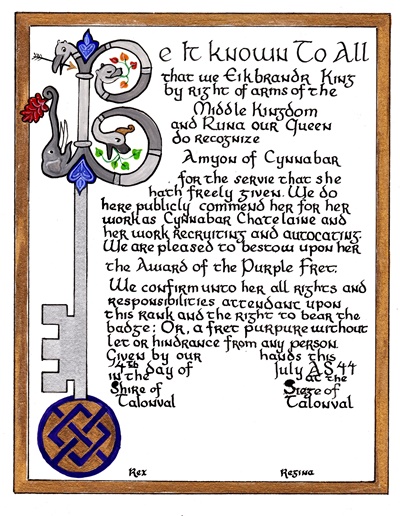 Be It Known To All
that we Eikbrandr King
by right of arms of the
Middle Kingdom
and Runa our Queen
do recognize
Amyon of Cynnabar
for the servie that she
hath freely given. We do
here publicly commend her for her
work as Cynnabar Chatelaine and
her work recruiting and autocating.
We are pleased to bestow upon her
the Award of the Purple Fret.
We confirm unto her all rights and
responsibilities attendant upon
this rank and the right to bear the
badge: Or, a fret purpure without
let or hindrance from any person.
Given by our hands this
4th day of July A S 44
in the at the
Shire of Siege of
Talonval Talonval
Rex Regina